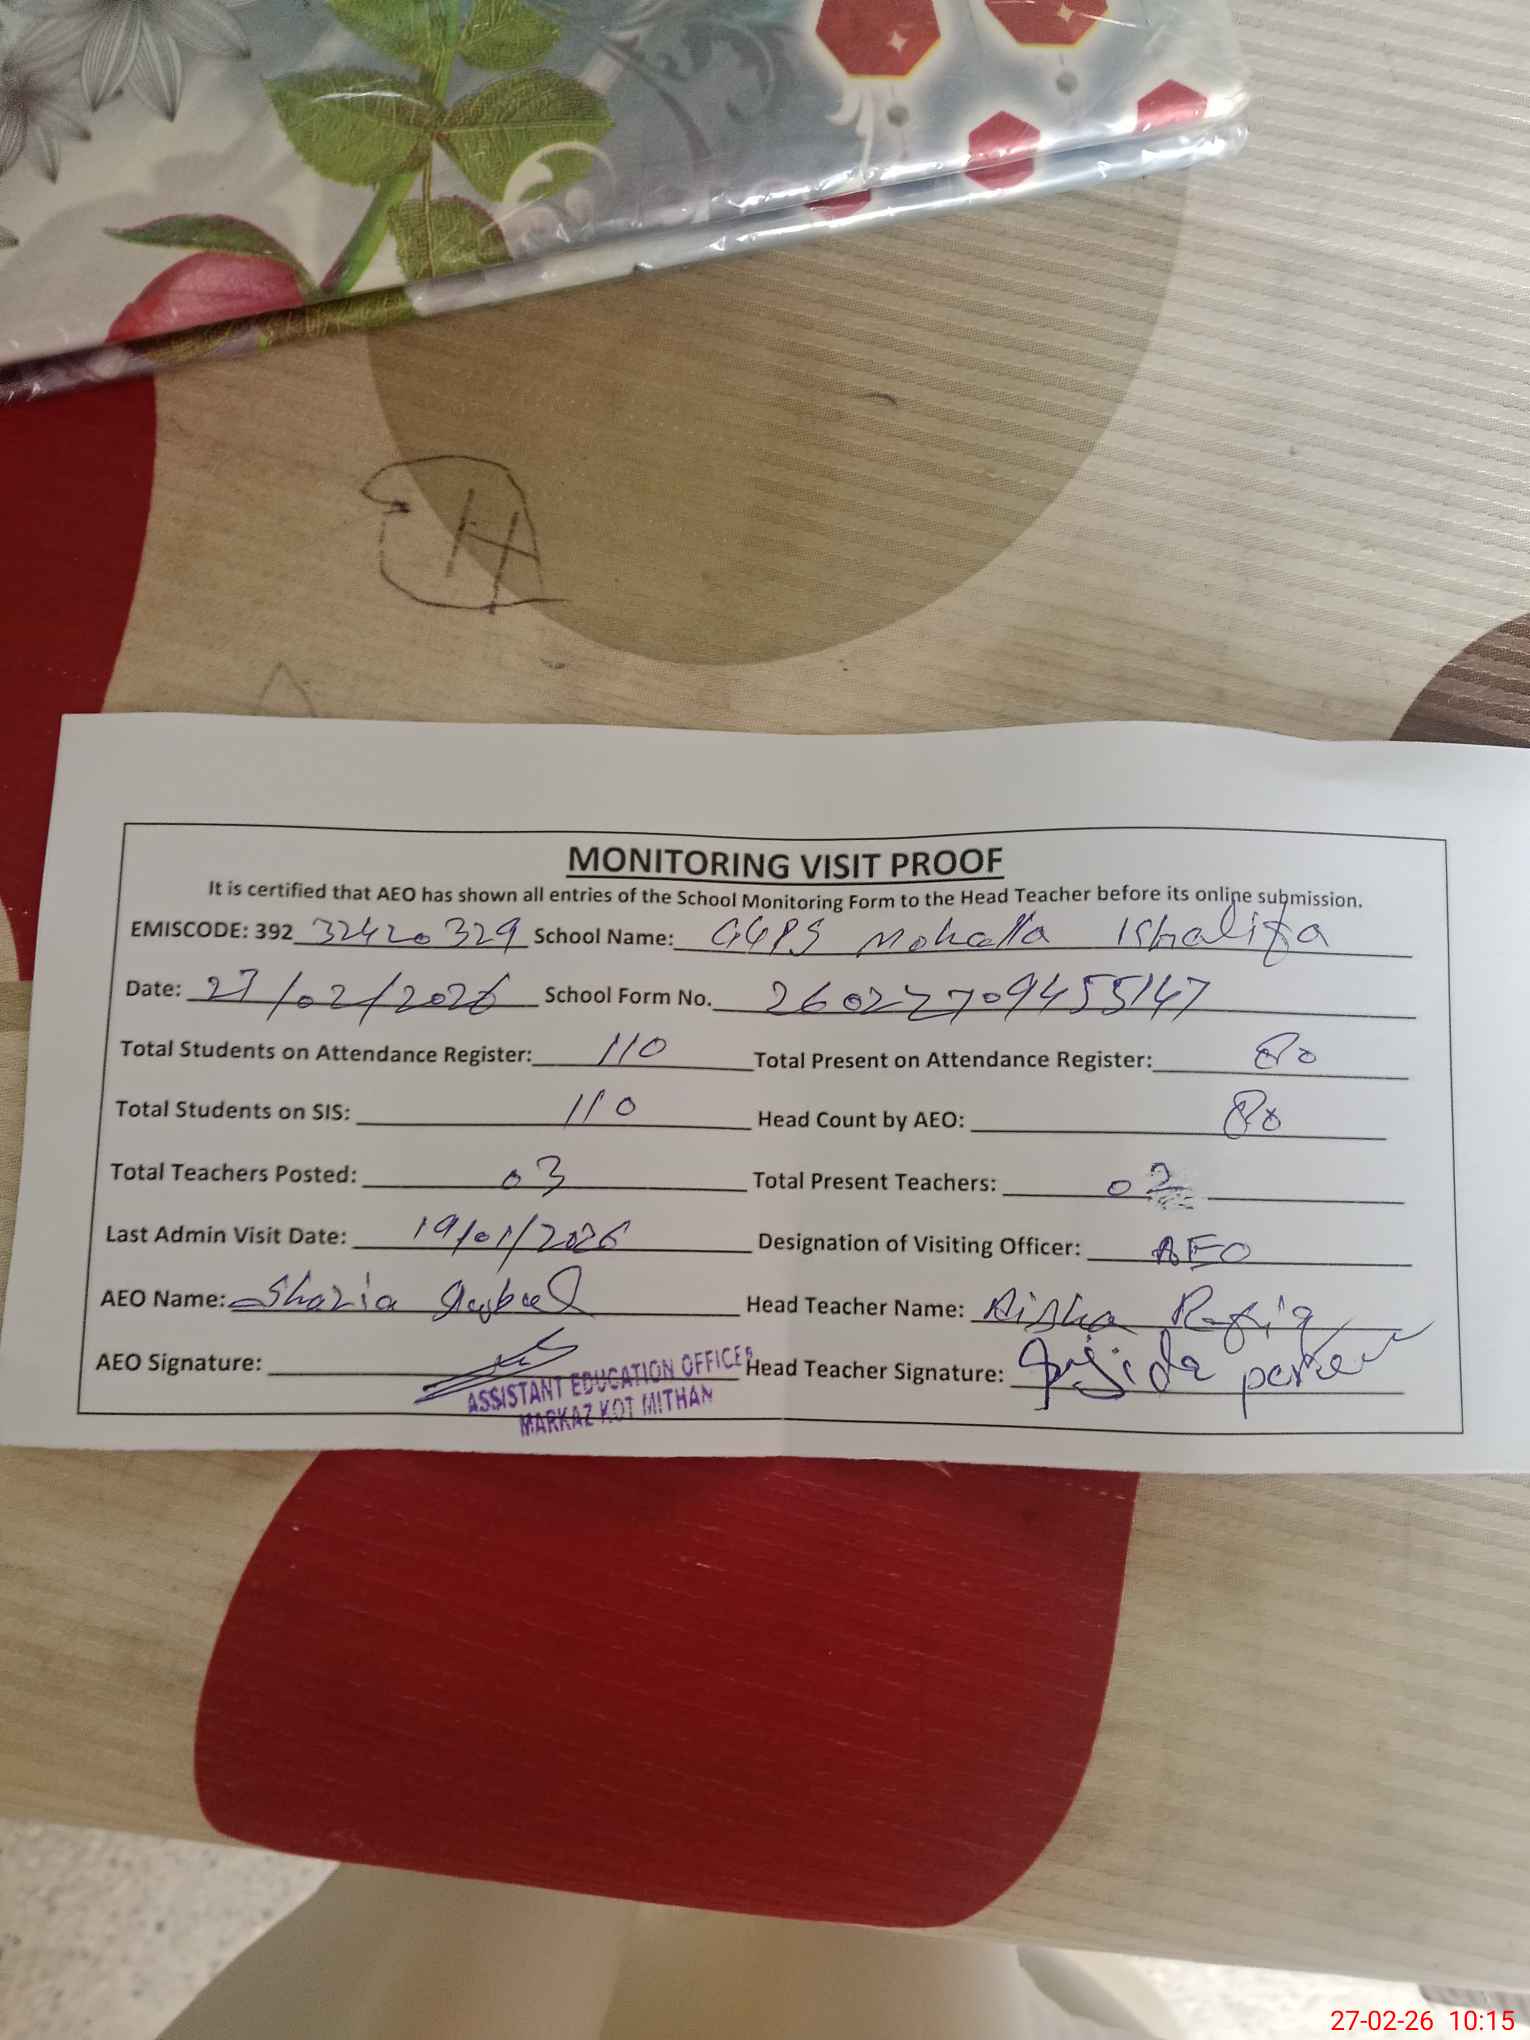 H
MONITORING VISIT PROOF
It is certified that AEO has shown all entries of the School Monitoring Form to the Head Teacher before its online submission.
EMISCODE: 392 32420329 School Name: GGPS Mohalla Khalifa
Date: 27/02/2026 School Form No. 260227709455147
Total Students on Attendance Register: 110 Total Present on Attendance Register: 80
Total Students on SIS: 110 Head Count by AEO: 80
Total Teachers Posted: 03 Total Present Teachers: 02
Last Admin Visit Date: 19/01/2026 Designation of Visiting Officer: AEO
AEO Name: Shazia Head Teacher Name: Aisha Rafiq
AEO Signature: Head Teacher Signature:
ASSISTANT EDUCATION OFFICER
MARKAZ KOT MITHAN
27-02-26 10:15